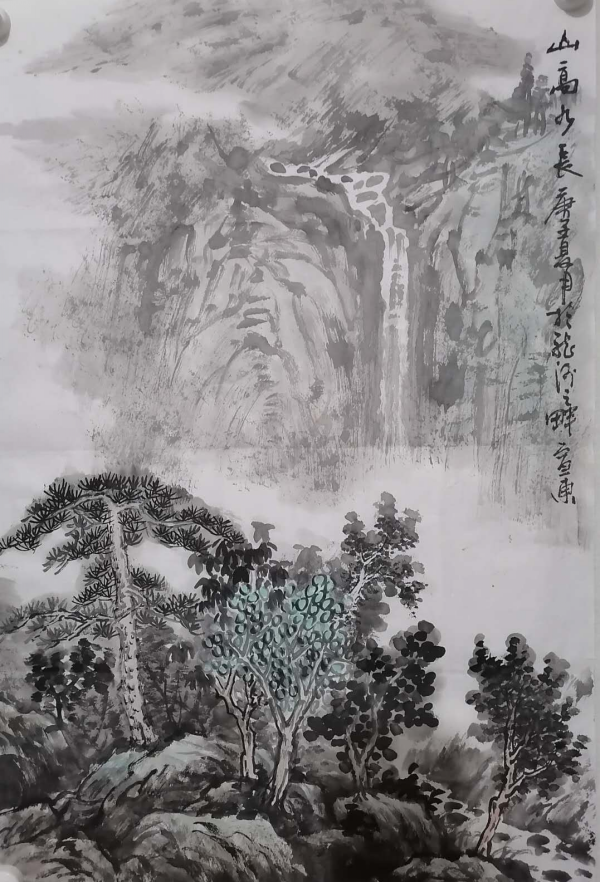 山高水長 庚子夏月於龍河之畔